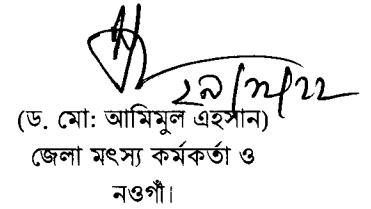 ২৯/১২/২২
(ড. মো: আমিমুল এহসান)
জেলা মৎস্য কর্মকর্তা ও
নওগাঁ।